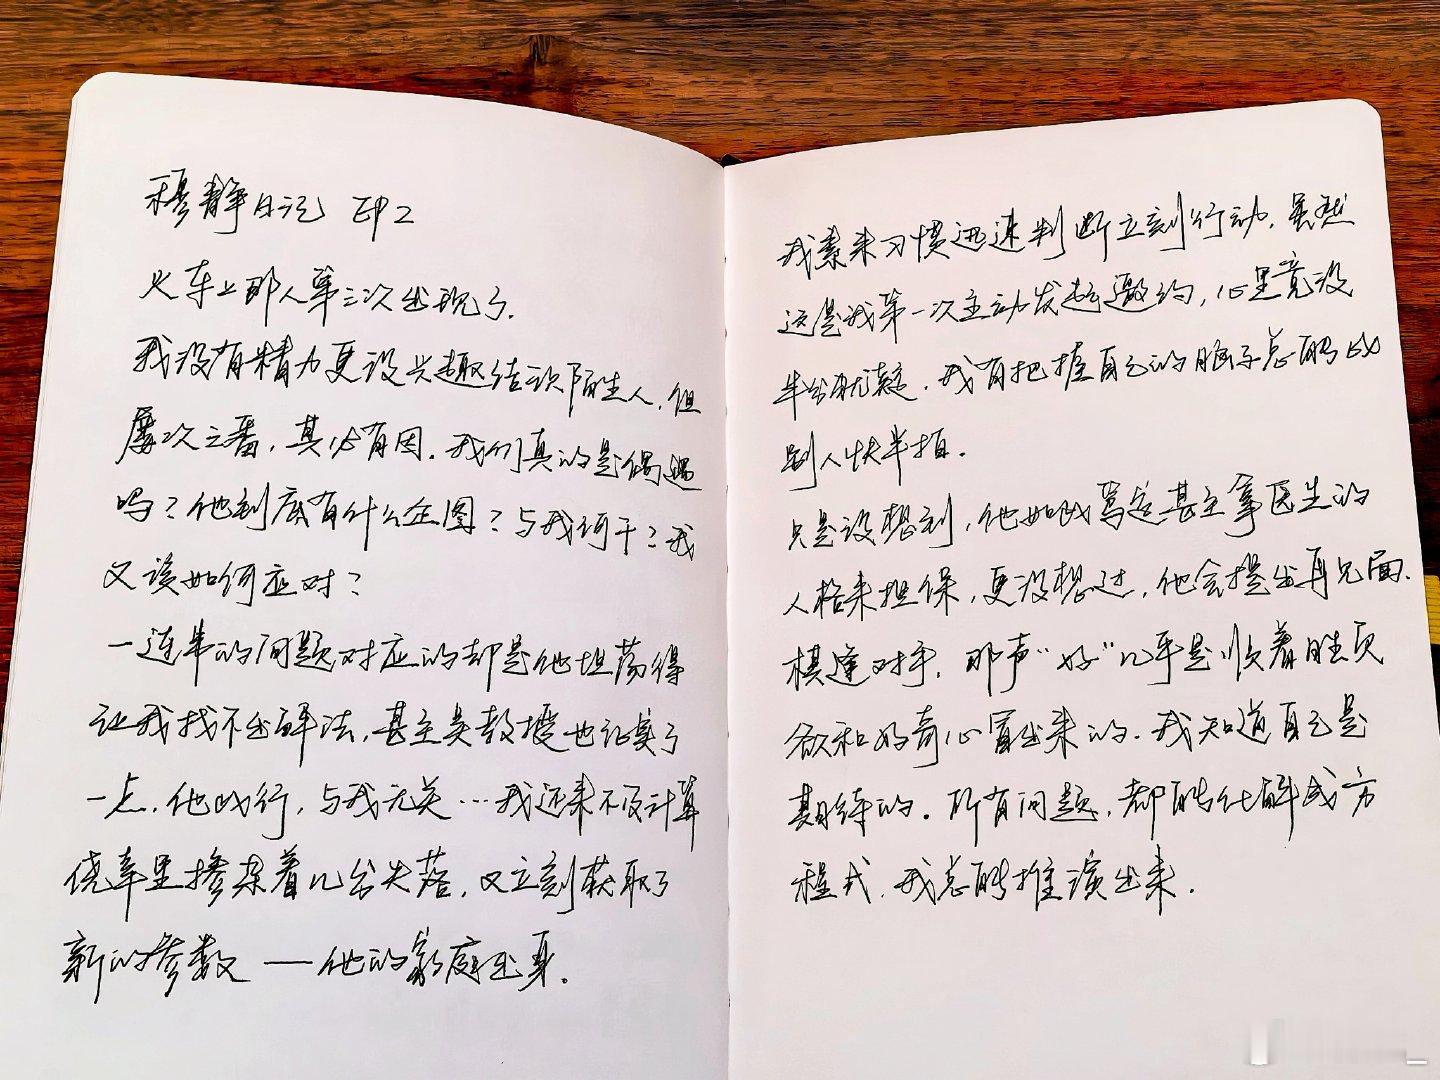 穆静日记 EP2
火车上那人第三次出现了.
我没有精力更没兴趣结识陌生人,但
屡次三番,其必有因.我们真的是偶遇
吗?他到底有什么企图?与我何干?我
又该如何应对?
一连串的问题对应的却是他坦荡得
让我找不出解法,甚至吴教授也证实了
一点.他此行,与我无关…我还来不及计算
侥幸里掺杂着几分失落,又立刻获取了
新的参数——他的家庭出身.
我素来习惯迅速判断立刻行动.虽然
这是我第一次主动发起邀约,心里竟没
半分犹疑.我有把握自己的脑子总能比
别人快半拍.
只是没想到,他如此笃定甚至拿医生的
人格来担保,更没想过,他会提出再见面.
棋逢对手.那声“好”几乎是顺着胜负
欲和好奇心冒出来的.我知道自己是
期待的.所有问题,都能化解成方
程式.我总能推演出来.